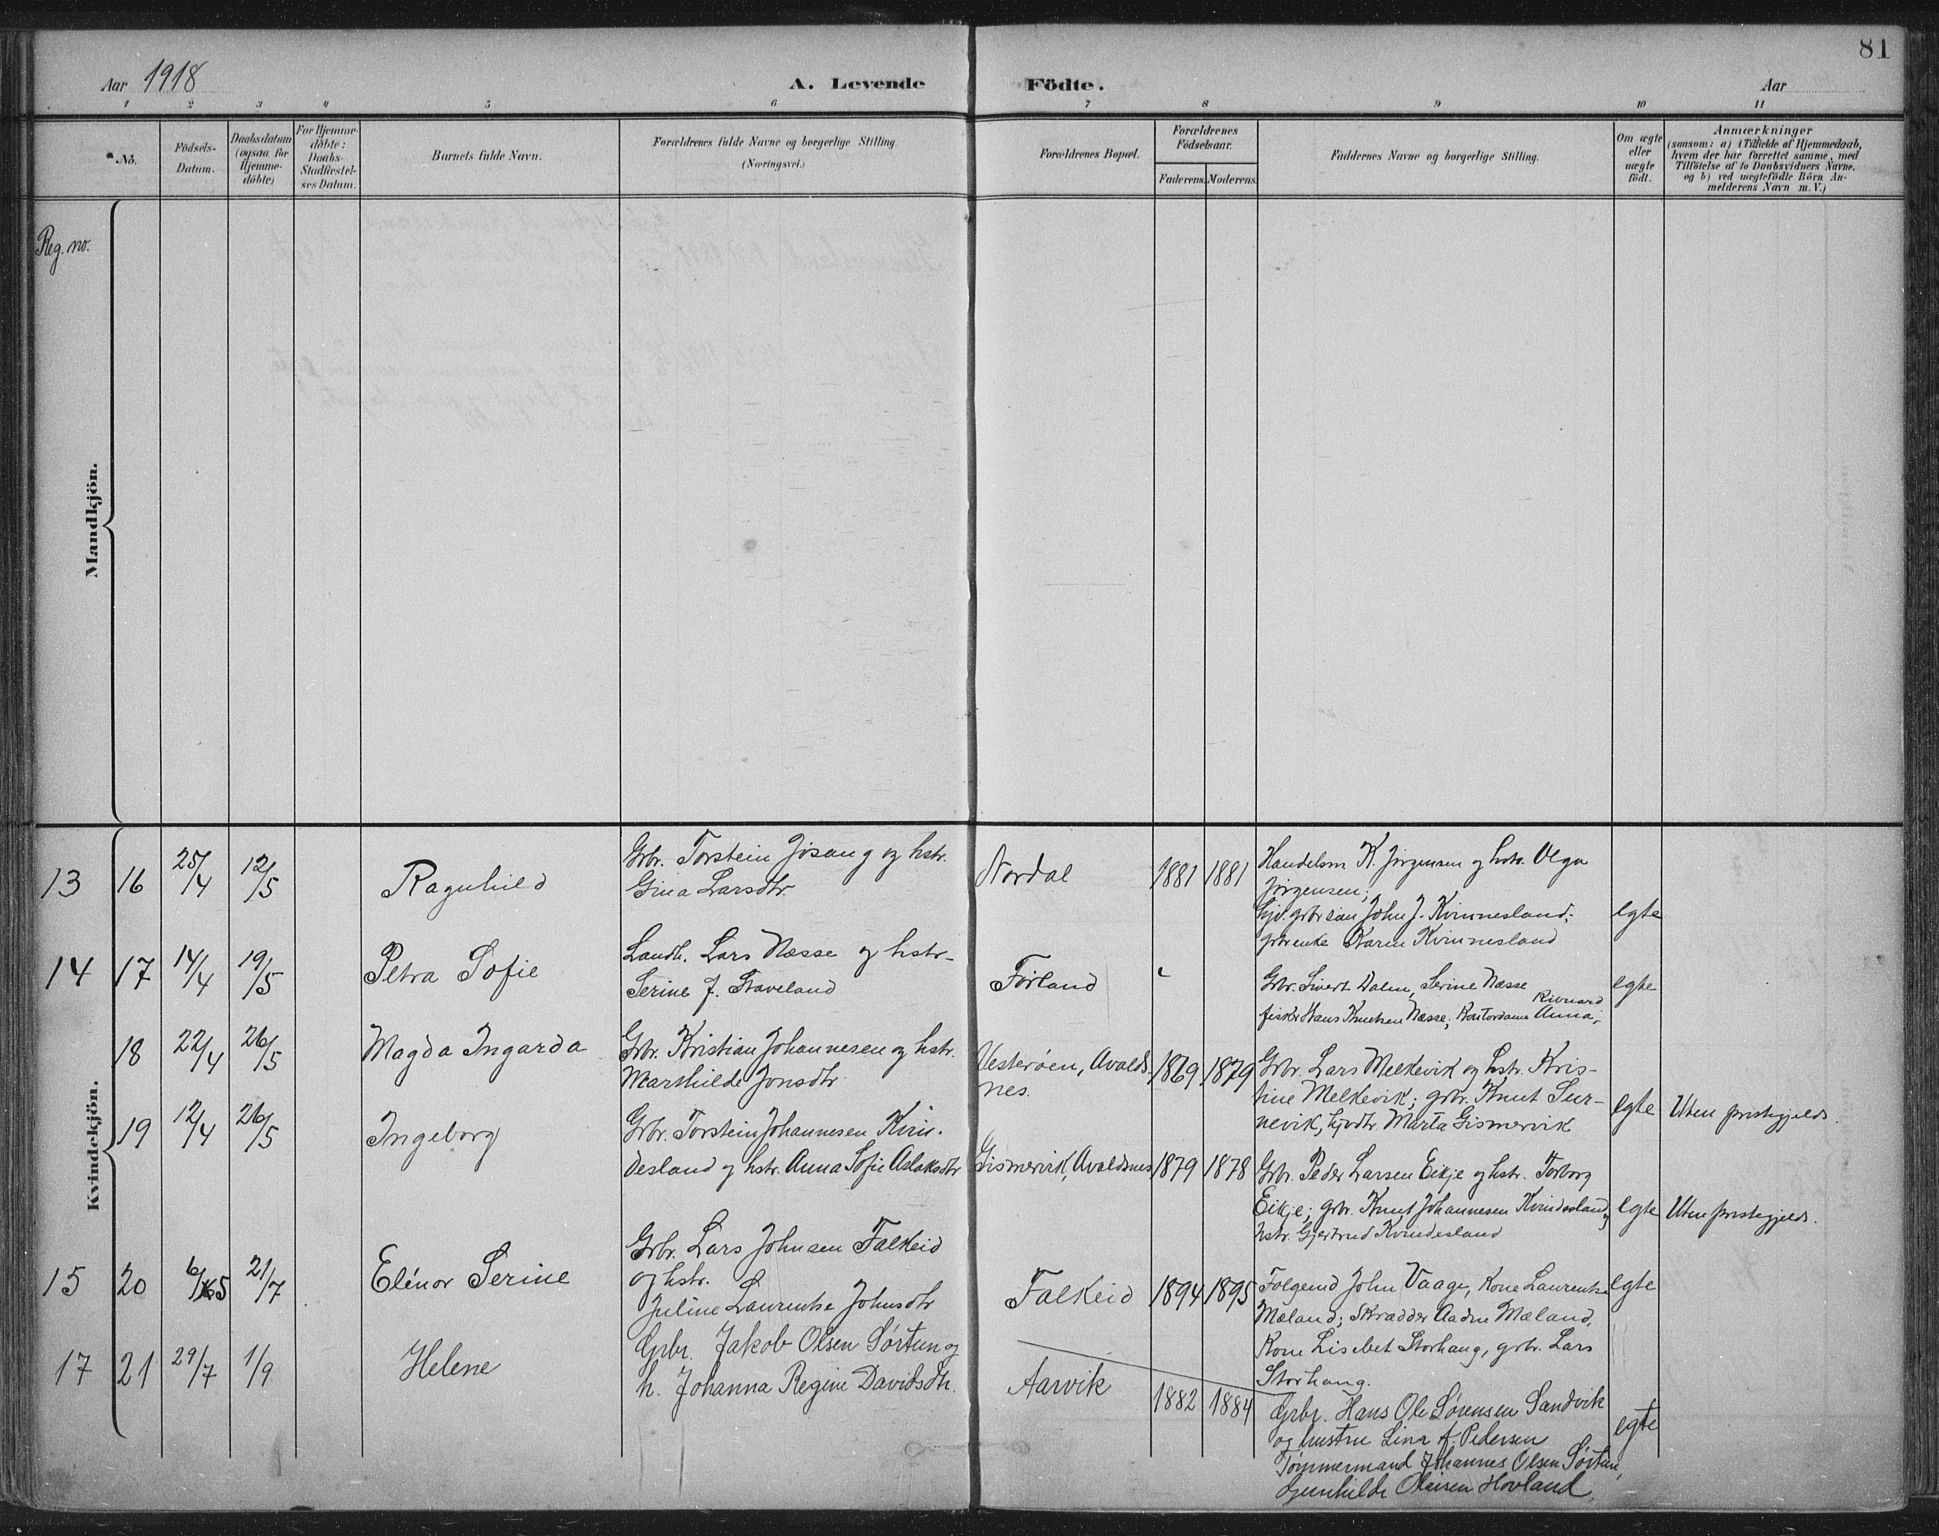 81
Aar 1918
A. Levende Födte.
Aar
1 2 3 4 5 6 7 8 9 10 11
No.
Födsels-
Datum.
Daabsdatum
(ogsaa for
Hjemme-
döbte)
For Hjemme-
döbte:
Daabs-
Stadfæstel-
ses Datum.
Barnets fulde Navn.
Forældrenes fulde Navne og borgerlige Stilling.
(Næringsvei.)
Forældrenes Bopæl.
Forældrenes
Födselsaar.
Faderens. Moderens.
Faddernes Navne og borgerlige Stilling.
Om ægte
eller
uægte
födt.
Anmærkninger
(saasom: a) i Tilfælde af Hjemmedaab,
hvem der har forrettet samme, med
Tilföielse af to Daabsvidners Navne.
og b) ved uægtefödte Börn An-
melderens Navn m. V.)
Reg. no.
Mandkjön.
Kvindekjön.
13 16 25/4 12/5 Ragnhild
Grbr. Torstein Jøsang og hstr.
Gina Larsdtr
Nordal 1881 1881
Handelsm K. Jørgensen og hstr. Olga
Jørgensen;
Gjv. grbrsøn John J. Kvinnesland;
grbrenke Karen Kvinnesland
egte
14 17 14/4 19/5 Petra Sofie
Landh. Lars Næsse og hstr.
Serine J. Staveland
Førland
Grbr. Sivert Dalen, Serine Næsse
fisker Hans Knutsen Næsse; Kontordame Anna
egte
18 22/4 26/5 Magda Ingarda
Grbr. Kristian Johannesen og hstr.
Marthilde Jonsdtr
Vesterøen, Avalds-
nes.
1869 1879
Grbr. Lars Melkevik og hstr. Kris-
tine Melkevik; grbr. Knut Sur-
nevik, hjvdtr. Marta Gismervik
egte Uten prestegjeld.
19 12/4 26/5 Ingeborg
Grbr. Torstein Johannesen Kvin-
desland og hstr. Anna Sofie Aslaksdtr
Gismervik, Avaldsnes 1879 1878
Grbr. Peder Larsen Eikje og hstr. Torborg
Eikje; grbr. Knut Johannesen Kvindesland og
hstr. Gjertrud Kvindesland
egte Uten prestegjeld.
15 20 6/5 21/7 Elénor Serine
Grbr. Lars Johnsen Falkeid
og hstr.
Juline Laurentse Johnsdtr
Falkeid 1894 1895
Folgemd John Vaage, Kone Laurentse
Mæland; Skrædder Aadne Mæland,
Kone Lisebet Storhaug, grbr. Lars
Storhaug.
egte
17 21 29/7 1/9 Helene
Grbr. Jakob Olsen Sørtun og
h. Johanna Regine Davidsdtr.
Aarvik
1882 1884
Grbr. Hans Ole Sørensen Sandvik
og hustru Lina f. Pedersen
Tømmermand Johannes Olsen Sørtun,
Gunhilde Olaisen Hovland.
egte